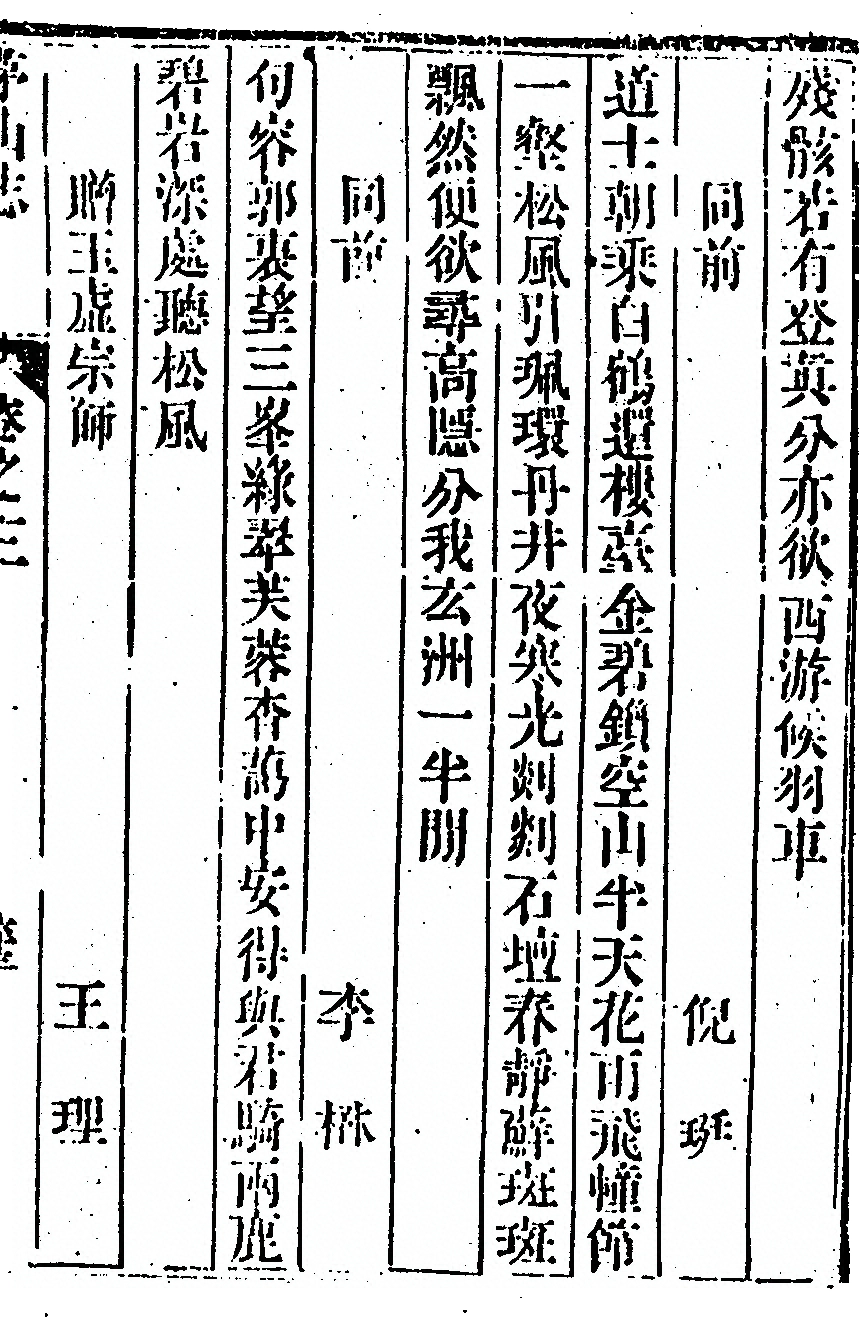 殘骸若有登真分亦欲西游候羽車
同前 倪
道士朝乘白鶴還樓臺金碧鎖空山半天花雨飛幢節
一壑松風引珮環丹井夜寒光剡剡石壇春靜蘚斑斑
飄然便欲尋高隱分我玄洲一半閒
同前 李
句容郭裏望三峯綠翠芙蓉杳靄中安得與君騎兩鹿
碧岩深處聽松風
贈玉虛宗師 王理
茅山志 卷之三